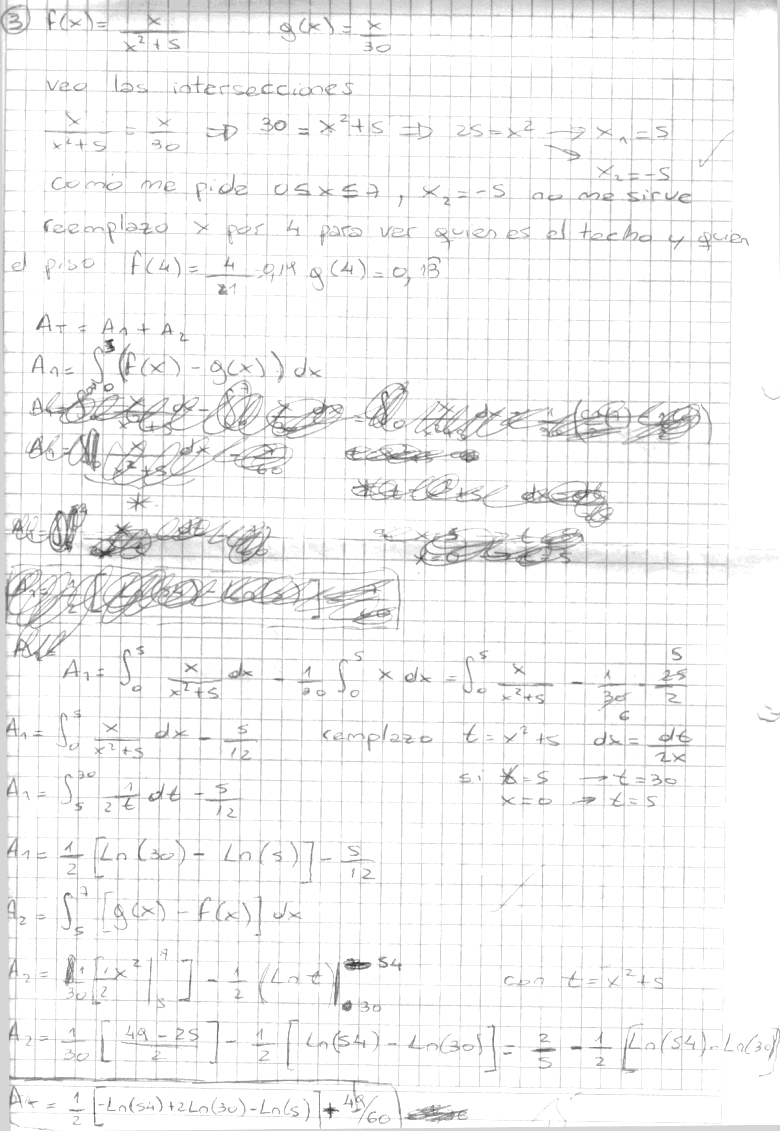 ③ f(x) = x/(x²+5)   g(x) = x/30
veo las intersecciones
x/(x²+5) = x/30 ⇒ 30 = x²+5 ⇒ 25 = x² → x₁ = 5
→ x₂ = -5
como me pide 0≤x≤7, x₂ = -5 no me sirve
reemplazo x por 4 para ver quien es el techo y quien
el piso f(4) = 4/21 = 0,19 g(4) = 0,13
A_T = A₁ + A₂
A₁ = ∫₀⁵ (f(x) - g(x)) dx
A₁ = ∫₀⁵ x/(x²+5) dx - 1/30 ∫₀⁵ x dx = ∫₀⁵ x/(x²+5) - 1/30 - 25/2
5
6
A₁ = ∫₀⁵ x/(x²+5) dx - 5/12   remplazo t = x²+5   dx = dt/2x
si x = 5 → t = 30
A₁ = ∫₅³⁰ 1/2t dt - 5/12   x = 0 → t = 5
A₁ = 1/2 [Ln(30) - Ln(5)] - 5/12
A₂ = ∫₅⁷ [g(x) - f(x)] dx
A₂ = 1/30 [1/2 x² |₅⁷] - 1/2 (Ln t)|₃₀⁵⁴   con t = x²+5
A₂ = 1/30 [(49-25)/2] - 1/2 [Ln(54) - Ln(30)] = 2/5 - 1/2 [Ln(54) - Ln(30)]
A_T = 1/2 [-Ln(54) + 2Ln(30) - Ln(5)] + 49/60